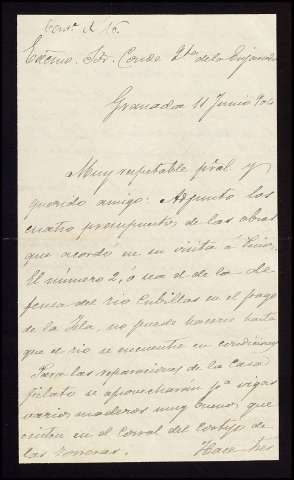 Cont. el 16.
Excmo. Sr. Conde Vdo de la Enjarada
Granada 11 Junio 904
Muy respetable pral. y
querido amigo: Adjunto los
cuatro presupuestos de las obras
que acordó en su visita á Pinos.
El número 2, ó sea el de la de-
fensa del rio Cubillas en el pago
de la Isla, no puedo hacerlo hasta
que el rio se encuentre en condiciones
Para las reparaciones de la Casa
fielato se aprovecharán pa vigas
varios maderos muy buenos, que
existen en el corral del Cortijo de
las Zorreras. Hace tres